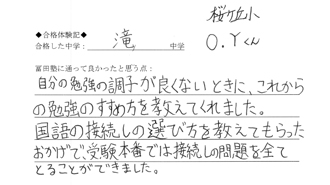 桜ヶ丘小
◆合格体験記◆
合格した中学： 滝 中学 O.Yくん
冨田塾に通って良かったと思う点：
自分の勉強の調子が良くないときに、これから
の勉強のすすめ方を教えてくれました。
国語の接続しの選び方を教えてもらった
おかげで、受験本番では接続しの問題を全て
とることができました。